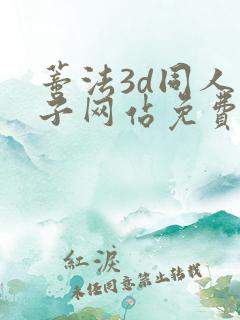 善法3d同人
子网站免费
紅淚
未经同意禁止转载